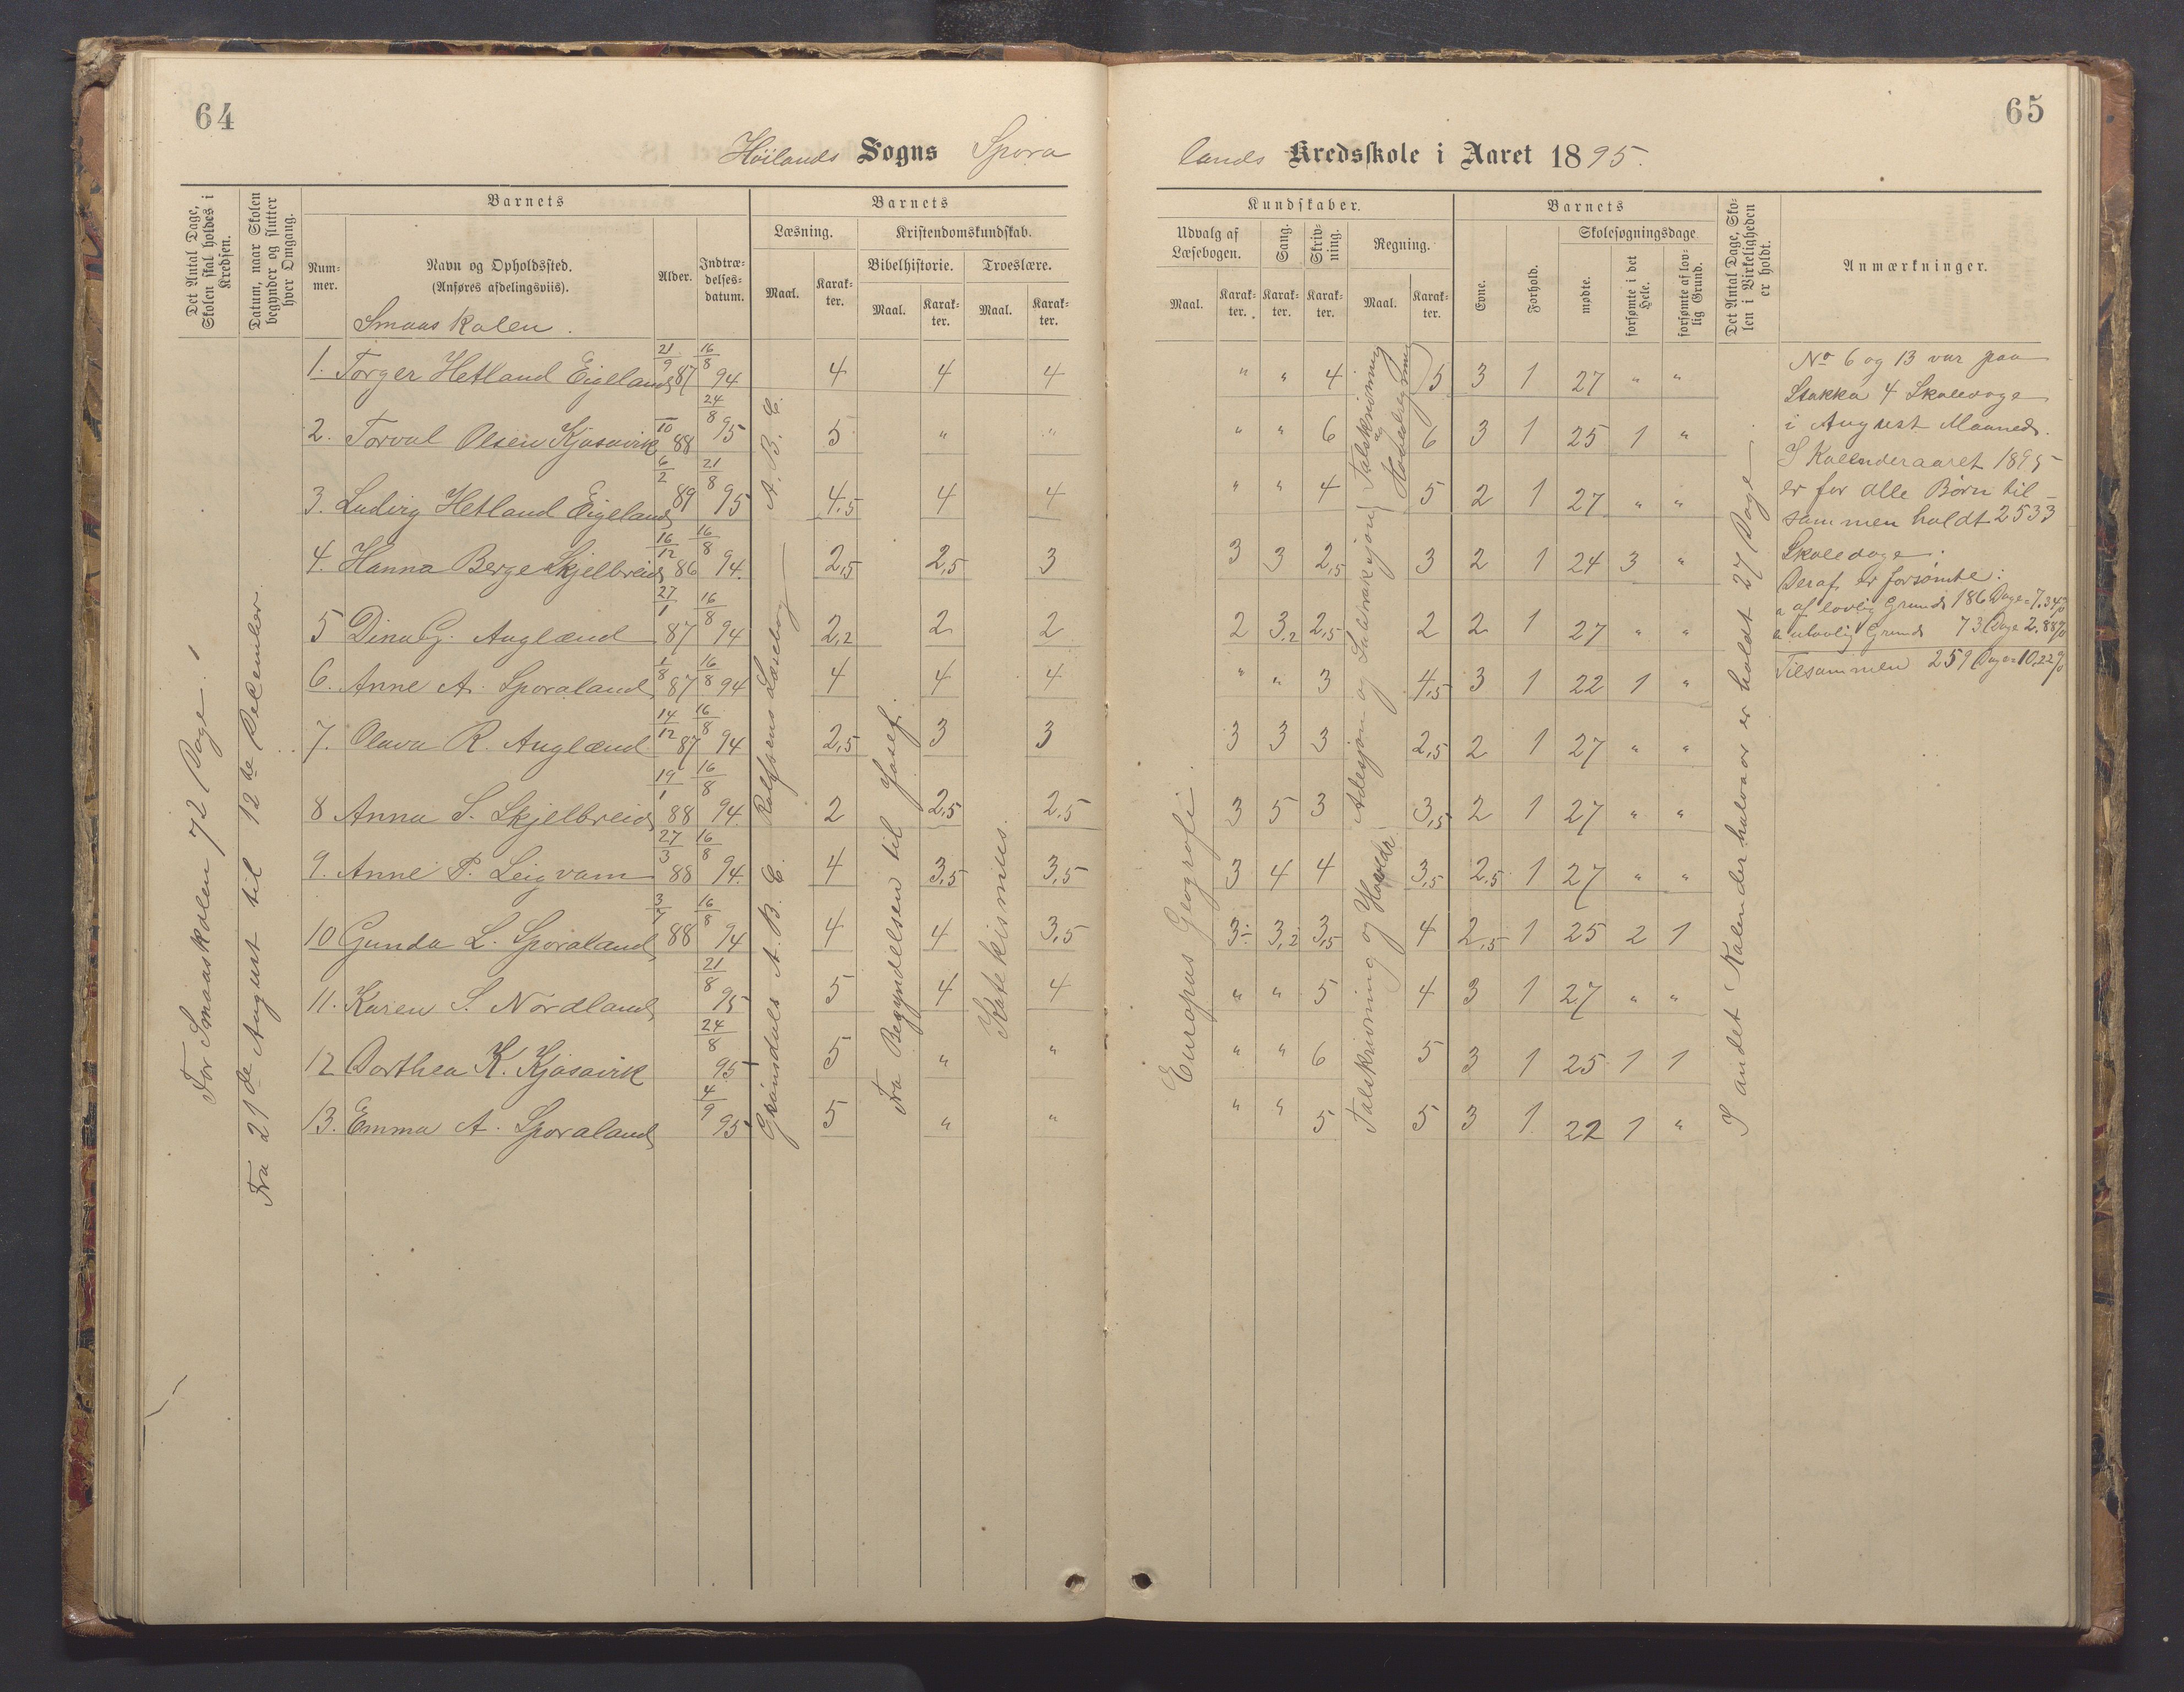 64
Höilands Sogns Spora
Det Antal Dage, Skolen skal holdes i Kredsen.
Datum, naar Skolen begynder og slutter hver Omgang.
Barnets
Nummer.
Navn og Opholdssted.
(Anføres afdelingsviis).
Smaaskolen.
Alder.
Indtrædelsesdatum.
Barnets
Læsning.
Maal.
Karakter.
Kristendomskundskab.
Bibelhistorie.
Troeslære.
Maal.
Karakter.
Maal.
Karakter.
For Smaaskolen 72 Dage.
Fra 21de August til 12te December.
A. B. C.
Rolfsens Læsebog
Grönsdals A. B. C.
Fra Begyndelsen til Josef.
Katekismus.
1. Torger Hetland Eigeland 21/9 87 16/8 94 4 4 4
2. Torval Olsen Kjosavik 88 24/8 95 5 " "
3. Ludvig Hetland Eigeland 6/2 89 21/8 95 4,5 4 4
4. Hanna Berge Skjelbreid 16/12 86 16/8 94. 2,5 2,5 3
5 Dina G. Auglænd 27/1 87 16/8 94 2,2 2 2
6. Anne A. Sporaland 1/8 87 16/8 94 4 4 4
7. Olava R. Auglænd 14/12 87 16/8 94 2,5 3 3
8 Anna S. Skjelbreid 19/1 88 16/8 94. 2 2,5 2,5
9. Anne P. Leigvam 27/3 88 16/8 94. 4 3,5 3,5
10 Gunda L. Sporaland 3/7 88 16/8 94 4 4 3,5
11. Karen S. Nordland 21/8 95 5 4 4
12 Dorthea K. Kjosavik 24/8 95 5 " "
13. Emma A. Sporaland 4/9 95 5 " "
65
lands Kredsskole i Aaret 1895.
Kundskaber.
Udvalg af Læsebogen.
Maal.
Karakter.
Sang.
Karakter.
Skrivning.
Karakter.
Regning.
Maal.
Karakter.
Barnets
Evne.
Forhold.
Skolesøgningsdage
mødte.
forsømte i det Hele.
forsømte af lovlig Grund.
Det Antal Dage, Skolen i Virkeligheden er holdt.
Anmærkninger.
Europas Geografi.
Talskrivning og Hovedregning
Adesjon og Subtraksjon
Talskrivning og Hovedr.
I andet Kalenderhalvaar er holdt 27 Dage
" " 4 5 3 1 27 " "
" " 6 6 3 1 25 1 "
" " 4 5 2 1 27 " "
3 3 2,5 3 2 1 24 3 "
2 3,2 2,5 2 2 1 27 " "
" " 3 4,5 3 1 22 1 "
3 3 3 2,5 2 1 27 " "
3 5 3 3,5 2 1 27 " "
3 4 4 3,5 2,5 1 27 " "
3÷ 3,2 3,5 4 2,5 1 25 2 1
" " 5 4 3 1 27 " "
" " 6 5 3 1 25 1 1
" " 5 5 3 1 22 1 "
No 6 og 13 var paa
Stokka 4 Skoledage
i August Maaned.
I Kalenderaaret 1895
er for alle Børn til-
sammen holdt 2533
Skoledage.
Deraf er forsømte:
a af lovlig Grund 186 Dage = 7,34%
" ulovlig Grund 73 Dage 2,88%
Tilsammen 259 Dage = 10,22%